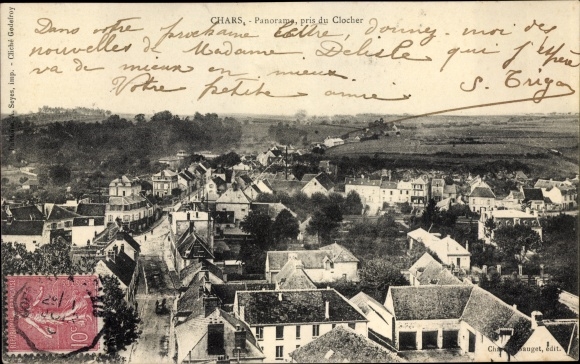 CHARS. - Panorama, pris du Clocher
Dans votre prochaine lettre, donnez-moi des
nouvelles de Madame Delisle qui j'espère
va de mieux en mieux.
Votre petite amie
S.
Seyes, imp. - Cliché Godefroy
édit.